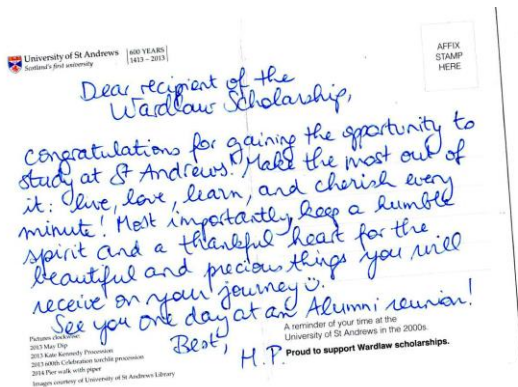 University of St Andrews
Scotland's first university
600 YEARS
1413 – 2013
AFFIX
STAMP
HERE
Dear recipient of the
Wardlaw Scholarship,
Congratulations for gaining the opportunity to
study at St Andrews! Make the most out of
it: live, love, learn, and cherish every
minute! Most importantly, keep a humble
spirit and a thankful heart for the
beautiful and precious things you will
receive on your journey ☺.
See you one day at an Alumni reunion!
Best,
H.P.
Pictures clockwise:
2013 May Dip
2013 Kate Kennedy Procession
2013 600th Celebration torchlit procession
2014 Pier walk with piper
Images courtesy of University of St Andrews Library
A reminder of your time at the
University of St Andrews in the 2000s.
Proud to support Wardlaw scholarships.